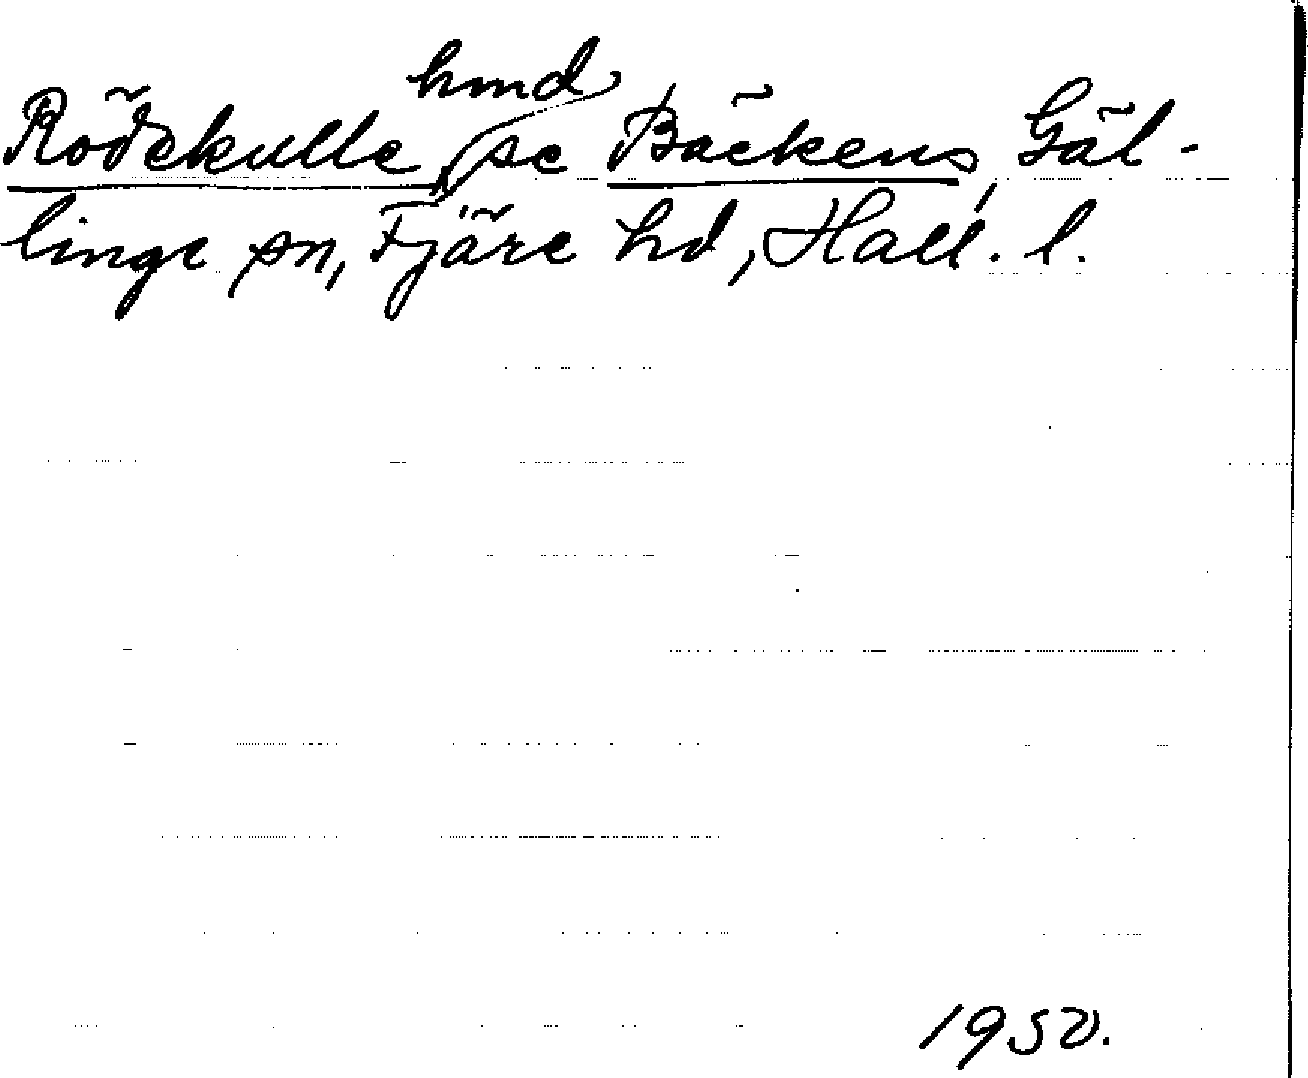 hmd
Rödekulle, se Bäckens, Gäl-
linge sn, Fjäre hd, Hall. l.
1950.